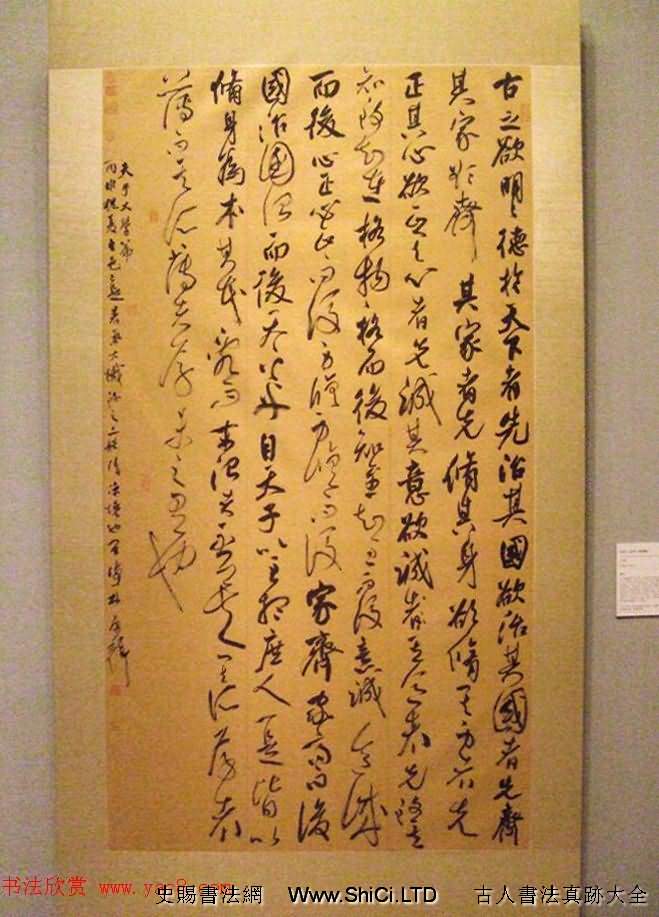 古之欲明〻德於天下者先治其國欲治其國者先齊
其家欲齊其家者先脩其身欲脩其身者先
正其心欲正其心者先誠其意欲誠其意者先致其
知致知在格物〻格而後知至知至而後意誠意誠
而後心正心正而後身脩身脩而後家齊家齊而後
國治國治而後天下平自天子以至於庶人壹是皆以
脩身為本其本亂而末治者否矣其所厚者
薄而其所薄者厚未之有也
夫子大學篇
书法欣赏
史賜書法網 Www.ShiCi.LTD 古人書法真跡大全